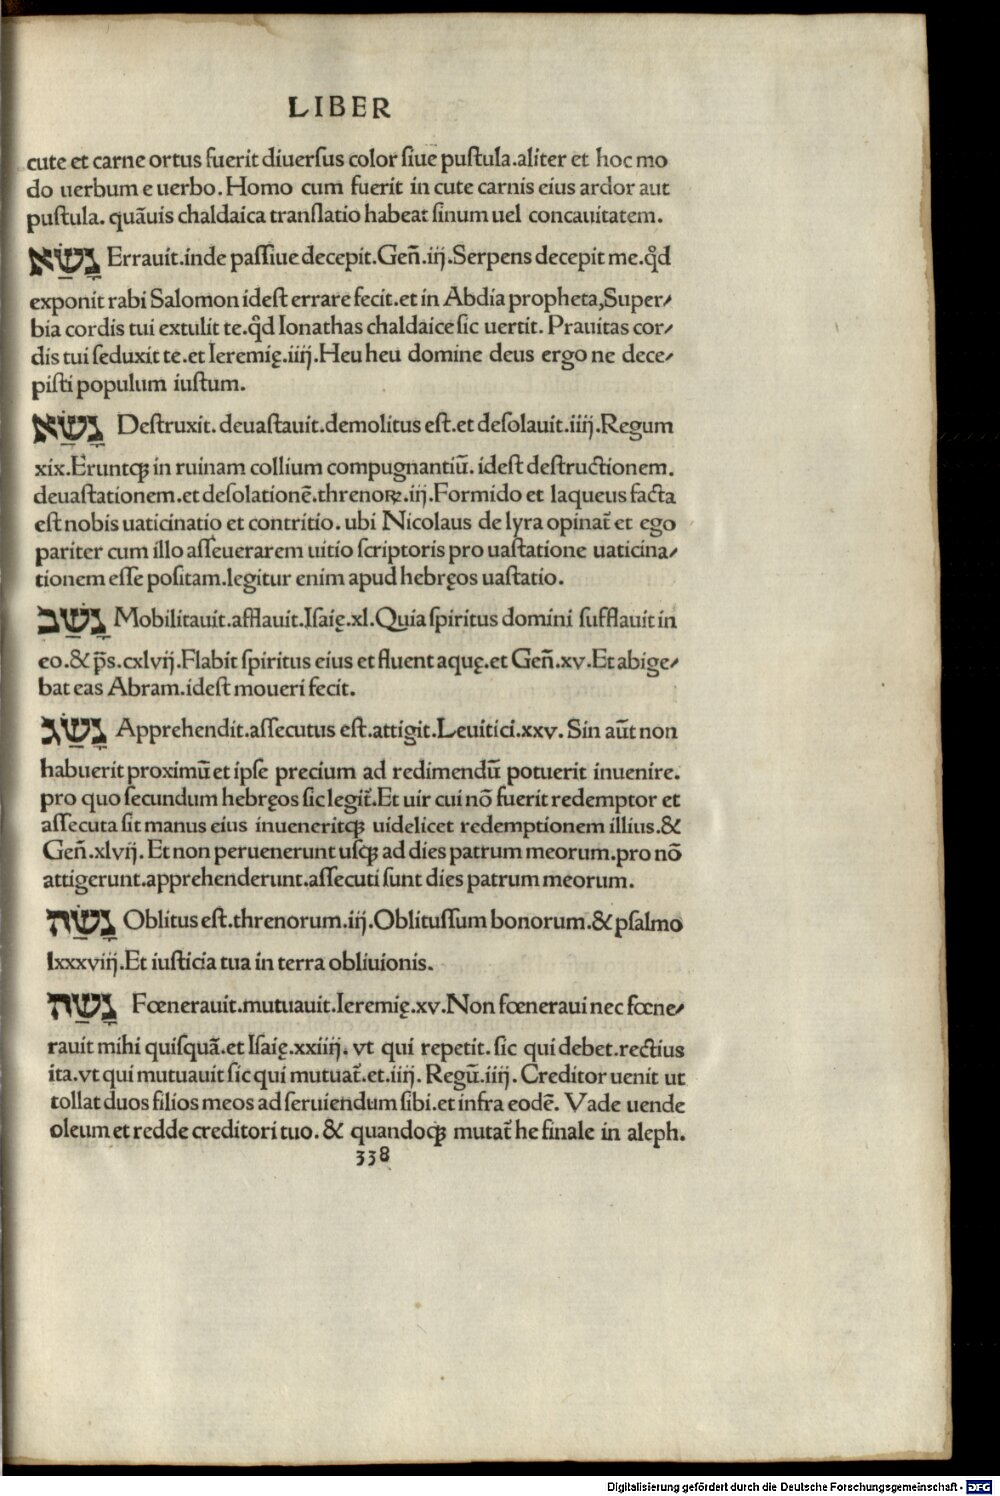 LIBER
cute et carne ortus fuerit diuersus color siue pustula.aliter et hoc mo
do uerbum e uerbo. Homo cum fuerit in cute carnis eius ardor aut
pustula. quãuis chaldaica translatio habeat sinum uel concauitatem.
נָשַׁא Errauit.inde passiue decepit.Geñ.iij.Serpens decepit me.qd̃
exponit rabi Salomon idest errare fecit.et in Abdia propheta,Super⸗
bia cordis tui extulit te.qd̃ Ionathas chaldaice sic uertit. Prauitas cor⸗
dis tui seduxit te.et Ieremię.iiij.Heu heu domine deus ergo ne dece⸗
pisti populum iustum.
נָשָׁא Destruxit. deuastauit.demolitus est.et desolauit.iiij.Regum
xix.Eruntqꝫ in ruinam collium compugnantiũ. idest destructionem.
deuastationem.et desolationẽ.threnoꝝ.iij.Formido et laqueus facta
est nobis uaticinatio et contritio. ubi Nicolaus de lyra opinat̃ et ego
pariter cum illo asseuerarem uitio scriptoris pro uastatione uaticina⸗
tionem esse positam.legitur enim apud hebręos uastatio.
נָשַׁב Mobilitauit.afflauit.Isaię.xl.Quia spiritus domini sufflauit in
eo.& p̃s.cxlvij.Flabit spiritus eius et fluent aquę.et Geñ.xv.Et abige⸗
bat eas Abram.idest moueri fecit.
נָשַׂג Apprehendit.assecutus est.attigit.Leuitici.xxv. Sin aũt non
habuerit proximũ et ipse precium ad redimendũ potuerit inuenire.
pro quo secundum hebręos sic legit̃.Et uir cui nõ fuerit redemptor et
assecuta sit manus eius inueneritqꝫ uidelicet redemptionem illius.&
Geñ.xlvij. Et non peruenerunt usqꝫ ad dies patrum meorum.pro nõ
attigerunt.apprehenderunt.assecuti sunt dies patrum meorum.
נָשָׁה Oblitus est.threnorum.iij.Oblitussum bonorum.& psalmo
lxxxviij.Et iusticia tua in terra obliuionis.
נָשַׁה Fœnerauit.mutuauit.Ieremię.xv.Non fœneraui nec fœne⸗
rauit mihi quisquã.et Isaię.xxiiij. vt qui repetit. sic qui debet.rectius
ita.vt qui mutuauit sic qui mutuat̃.et.iiij. Regũ.iiij. Creditor uenit ut
tollat duos filios meos ad seruiendum sibi.et infra eodẽ. Vade uende
oleum et redde creditori tuo. & quandoqꝫ mutat̃ he finale in aleph.
338
Digitalisierung gefördert durch die Deutsche Forschungsgemeinschaft - DFG